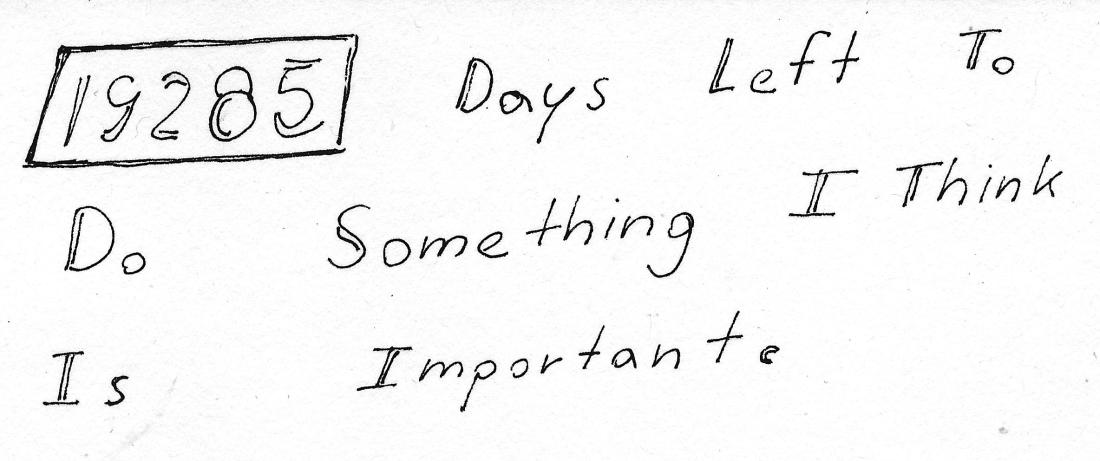 19285 Days Left To
Do Something I Think
Is Important.